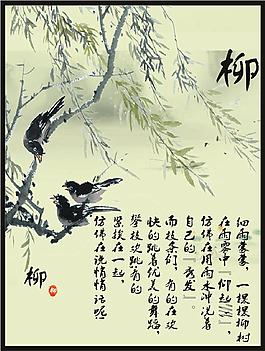 柳
细雨蒙蒙，一棵棵柳树
在雨雾中『仰起
仿佛在用雨水冲洗着
自己的『秀发』。
而枝条们，有的在欢
快的跳着优美的舞蹈，
攀枝欢跳有的
紧挨在一起，
仿佛在说悄悄话呢。
柳